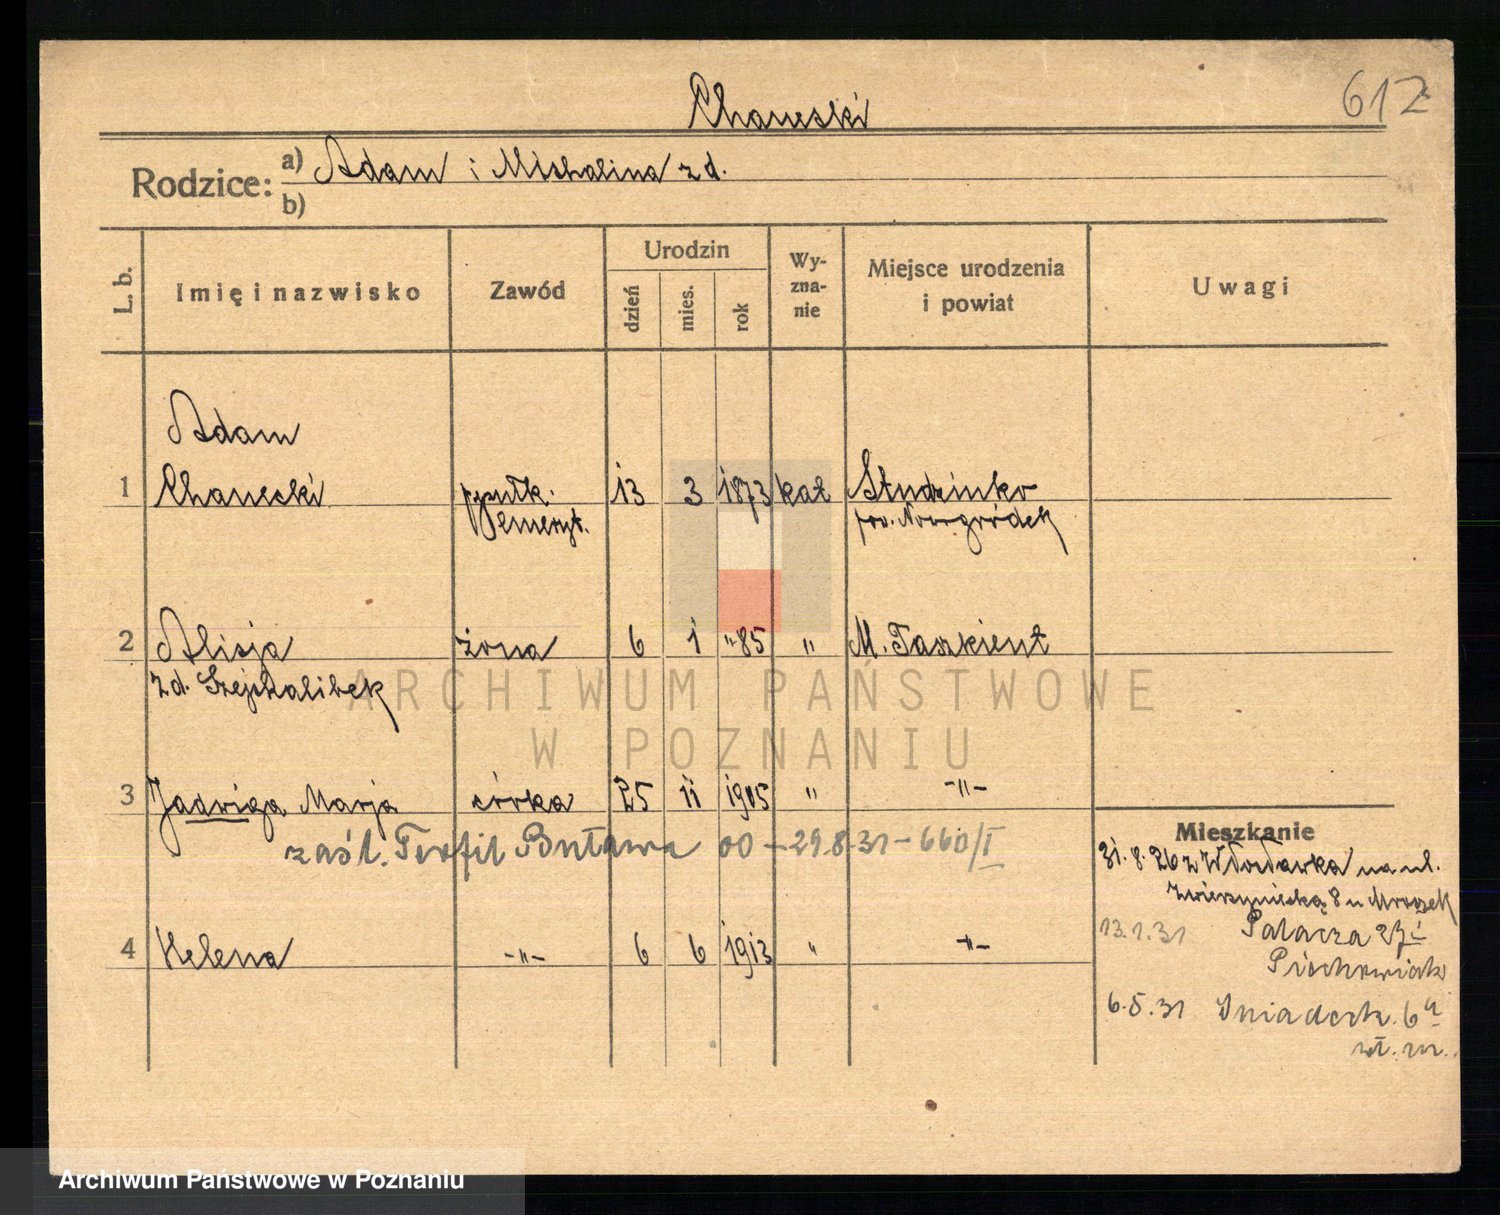 612
Chaneski
Rodzice: a) Adam i Michalina z d.
b)
L. b.
Imię i nazwisko
Zawód
Urodzin
dzień
mies.
rok
Wy-
zna-
nie
Miejsce urodzenia
i powiat
Uwagi
Adam
1 Chanecki ppułk. 13 3 1873 kat Studzinko
emeryt. pow. Nowogródek
2 Alicja żona 6 1 "85 " M. Taszkient
z d. Szejkalibek
3 Jadwiga Marja córka 25 11 1905 " -"-
zaśl. Teofil Buława oo - 29.8.31 - 660/I
4 Helena -"- 6 6 1913 " -"-
Mieszkanie
31.8.26 z Włodawka na ul.
Zwierzyniecką 8 u Mrozek
13.1.31 Palacza 27
6.5.31 Śniadeck. 6a
wł. m.
ARCHIWUM PAŃSTWOWE
W POZNANIU
Archiwum Państwowe w Poznaniu